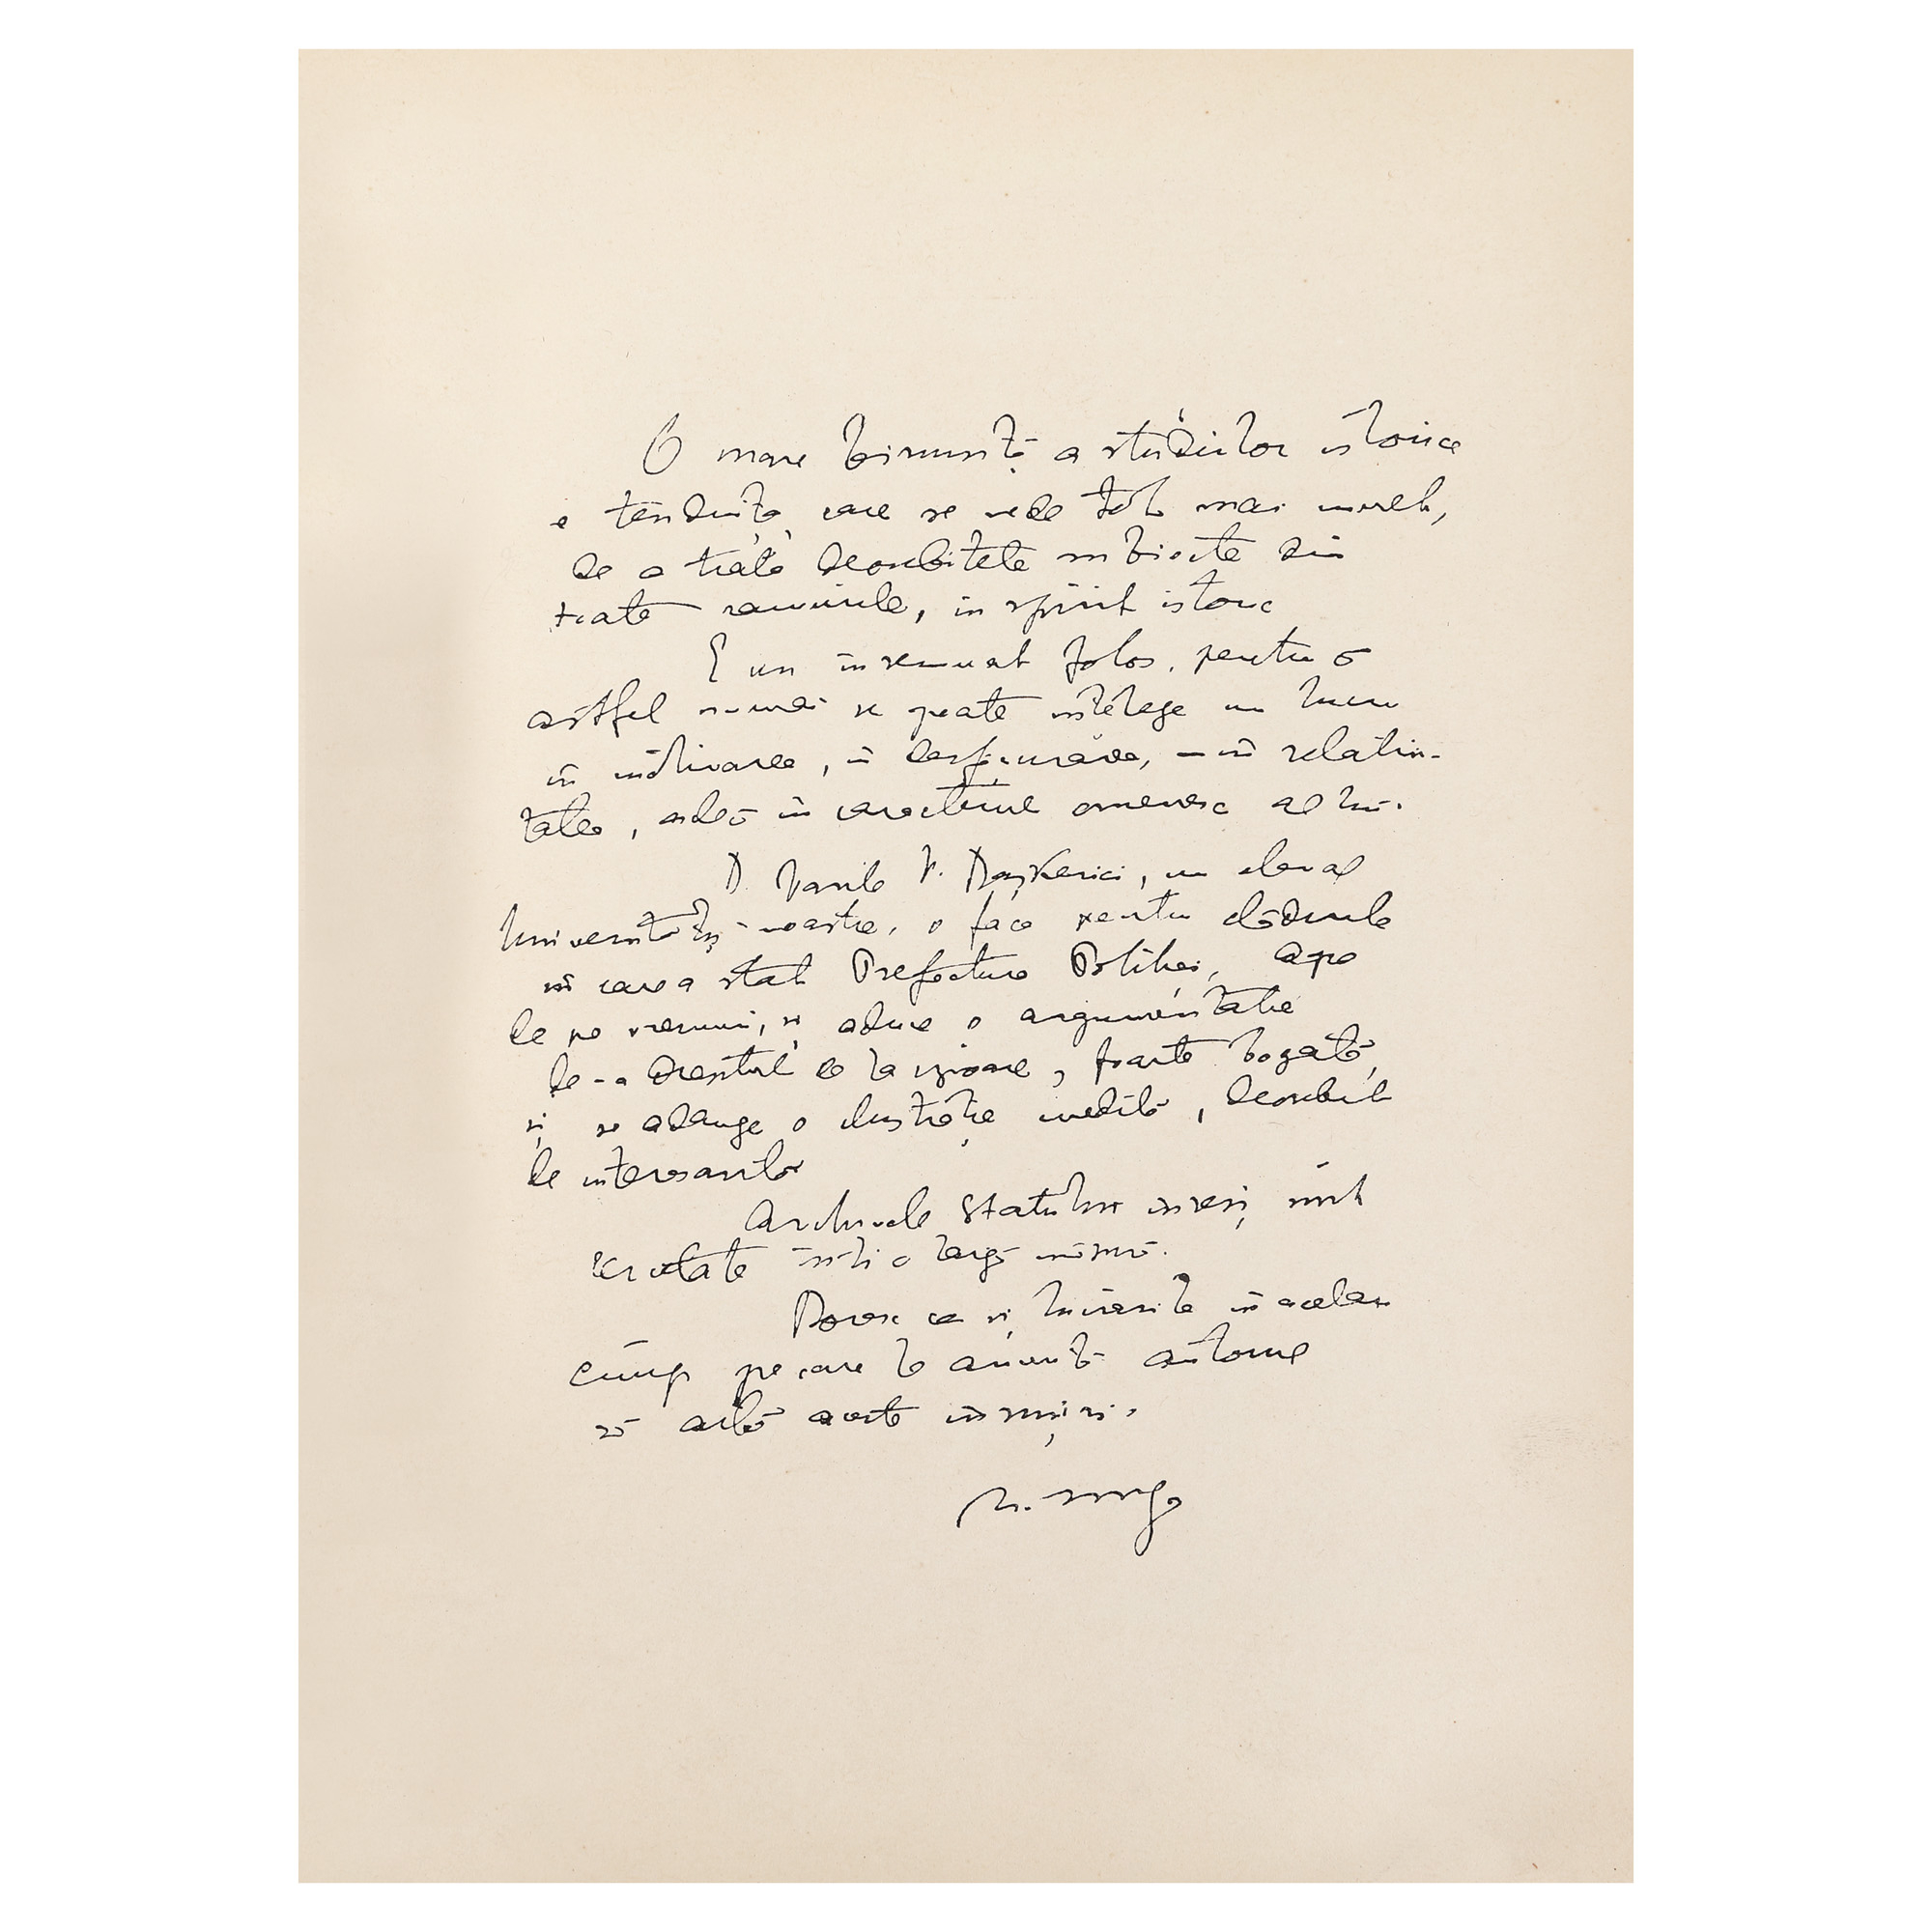 O mare biruință a studiilor istorice
e tendința, care se vede tot mai mult,
de a trata deosebitele subiecte din
toate ramurile, în spirit istoric
E un însemnat folos, pentru că
astfel numai se poate înțelege un lucru
în motivarea, în desfășurarea, în relativi-
tatea, adecă în caracterul omenesc al lui.
D. Vasile V. Dașkevici, un elev al
Universității noastre, o face pentru clădirile
în care a stat Prefectura Poliției, Agia
de pe vremuri, și aduce o argumentație
de-a dreptul de la izvoare, foarte bogată,
și se adauge o ilustrație inedită, deosebit
de interesantă
Archivele Statului înseși sînt
scrutate într'o largă măsură.
Doresc ca și lucrările în același
cîmp pe care le anunță autorul
să aibă aceste însușiri.
N. Iorga